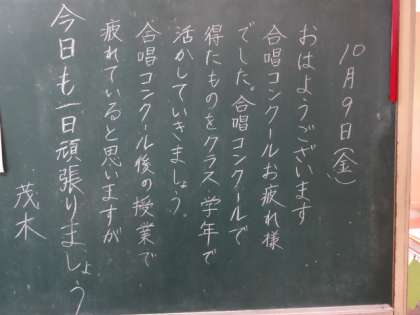 10月9日(金)
おはようございます
合唱コンクールお疲れ様
でした。合唱コンクールで
得たものをクラス・学年で
活かしていきましょう。
合唱コンクール後の授業で
疲れていると思いますが
今日も一日頑張りましょう
茂木